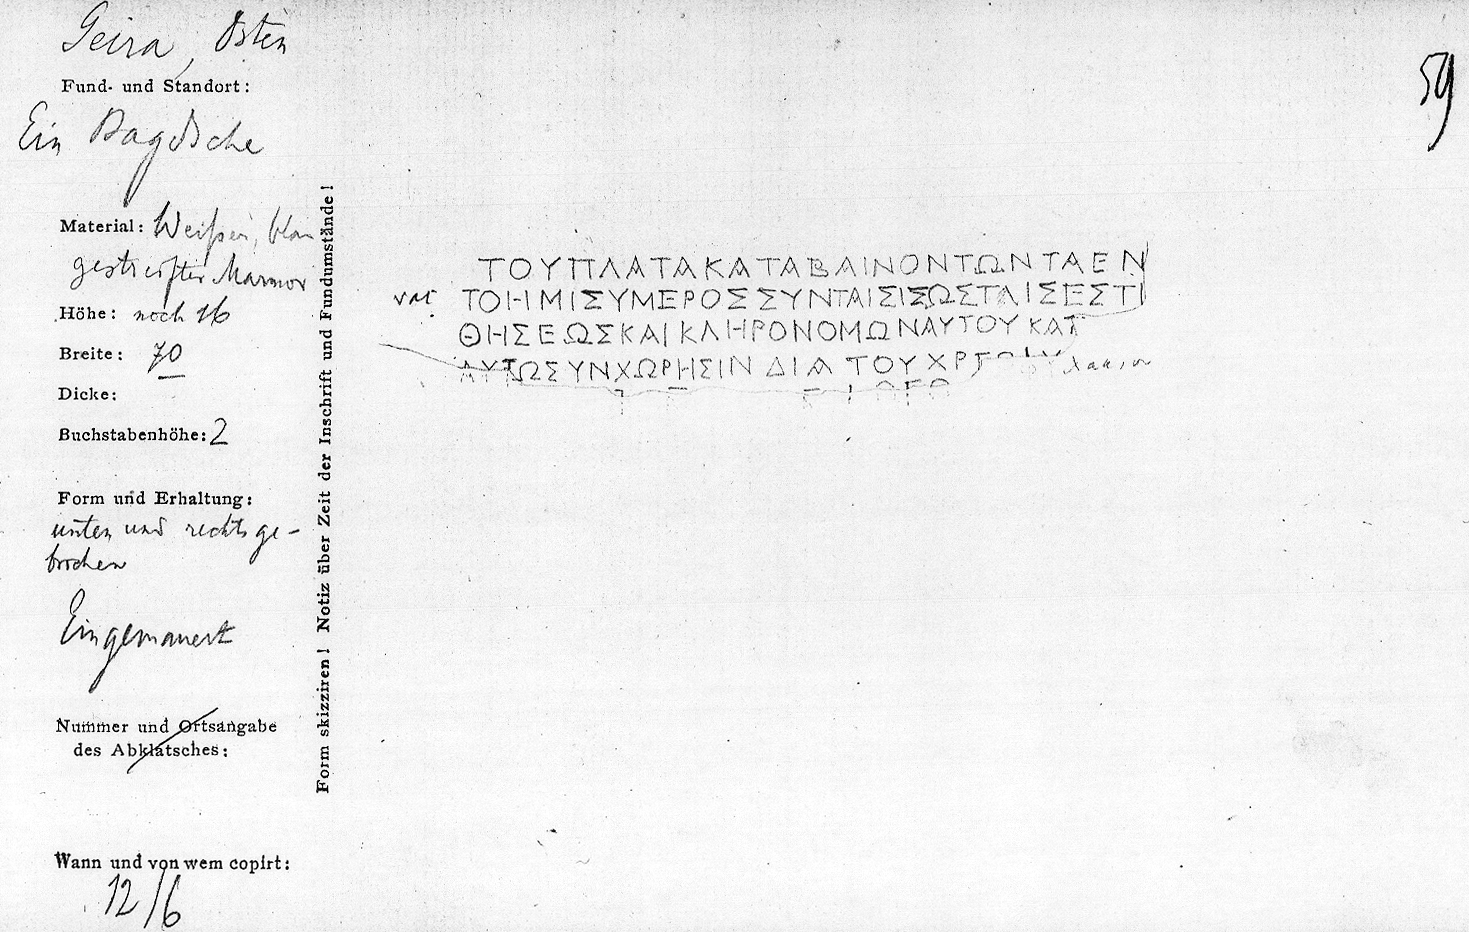 Geira, Osten
59
Fund- und Standort:
Ein Bagdsche
Material: Weißer, blau
gestreifter Marmor
Höhe: noch 16
Breite: 70
Dicke:
Buchstabenhöhe: 2
Form und Erhaltung:
unten und rechts ge-
brochen
Eingemauert
Nummer und Ortsangabe
des Abklatsches:
Wann und von wem copirt:
12/6
Form skizziren! Notiz über Zeit der Inschrift und Fundumstände!
ΤΟΥΠΛΑΤΑΚΑΤΑΒΑΙΝΟΝΤΩΝΤΑΕΝ
vac. ΤΟΗΜΙΣΥΜΕΡΟΣΣΥΝΤΑΙΣΙΣΩΣΤΑΙΣΕΣΤΙ
ΘΗΣΕΩΣΚΑΙΚΛΗΡΟΝΟΜΩΝΑΥΤΟΥΚΑΤ
ΑΥΤΩΣΥΝΧΩΡΗΣΙΝ ΔΙΑ ΤΟΥ ΧΡΕΟΦΥλακιου